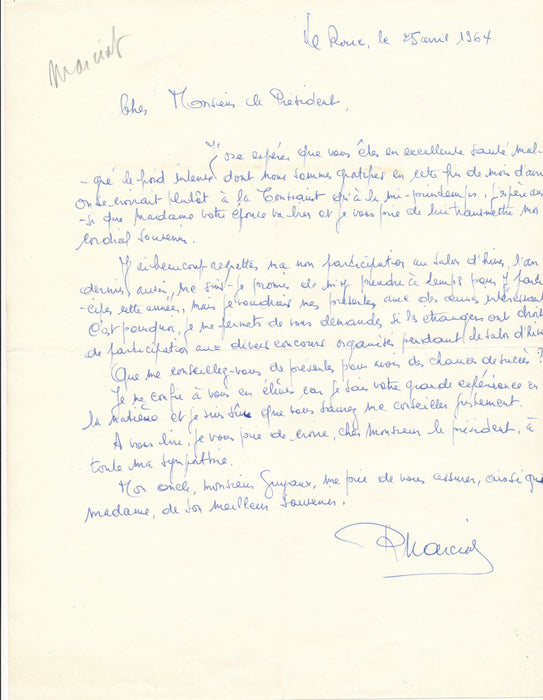 Marciat
Le Roux, le 25 avril 1964
Cher Monsieur le Président,
J'ose espérer que vous êtes en excellente santé mal-
-gré le froid intense dont nous sommes gratifiés en cette fin de mois d'avril
on se croirait plutôt à la Toussaint qu'à la mi-printemps. J'espère aus-
-si que madame votre épouse va bien et je vous prie de lui transmettre mon
cordial souvenir.
J'ai beaucoup regretté ma non participation au salon d'hiver, l'an
dernier, aussi, me suis-je promis de m'y prendre à temps pour y parti-
-ciper cette année, mais je voudrais me présenter avec des œuvres intéressantes
C'est pourquoi, je me permets de vous demander si les étrangers ont droit
de participation aux divers concours organisés pendant le salon d'hiver
Que me conseillez-vous de présenter pour avoir des chances de succès ?
Je me confie à vous en élève car je sais votre grande expérience en
la matière et je suis sûr que vous saurez me conseiller justement.
A vous lire, je vous prie de croire, cher monsieur le président, à
toute ma sympathie.
Mon oncle, monsieur Guyaux, me prie de vous assurer, ainsi que
madame, de son meilleur souvenir.